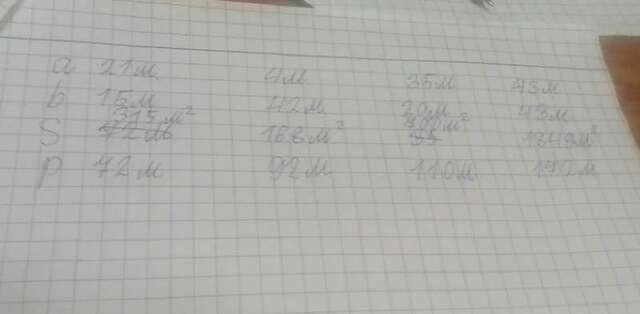 a 21м 4м 35м 43м
b 15м 42м 20м 43м
S 315м² 168м² 700м² 1849м²
P 72м 92м 110м 172м